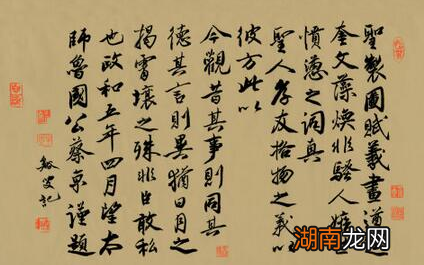 聖製圖賦羲畫道
奎文藻煥非騷人嬉
憤懣之詞真
聖人孝友格物之義以
彼方此以
今觀昔其事則同其
德其言則異猶日月之
揭霄壤之殊非臣敢私
也政和五年四月望太
師魯國公蔡京謹題
敏叟記
湖南龙网